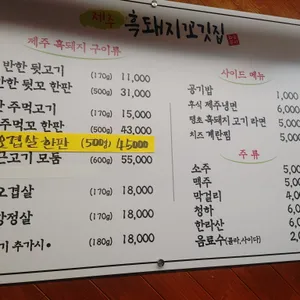 제주 흑돼지꼬깃집
제주 흑돼지 구이류
반한 뒷고기 (170g) 11,000
반한 뒷꼬 한판 (500g) 31,000
주먹고기 (170g) 15,000
주먹꼬 한판 (500g) 43,000
겹살 한판 (500g) 45,000
근고기 모둠 (600g) 55,000
오겹살 (170g) 18,000
항정살 (170g) 18,000
기 추가시 (180g) 18,000
사이드 메뉴
공기밥 1,000
후식 제주냉면
명초 흑돼지 고기 라면
치즈 계란찜
주 류
소주
맥주
막걸리
청하
한라산
음료수(콜라,사이다)